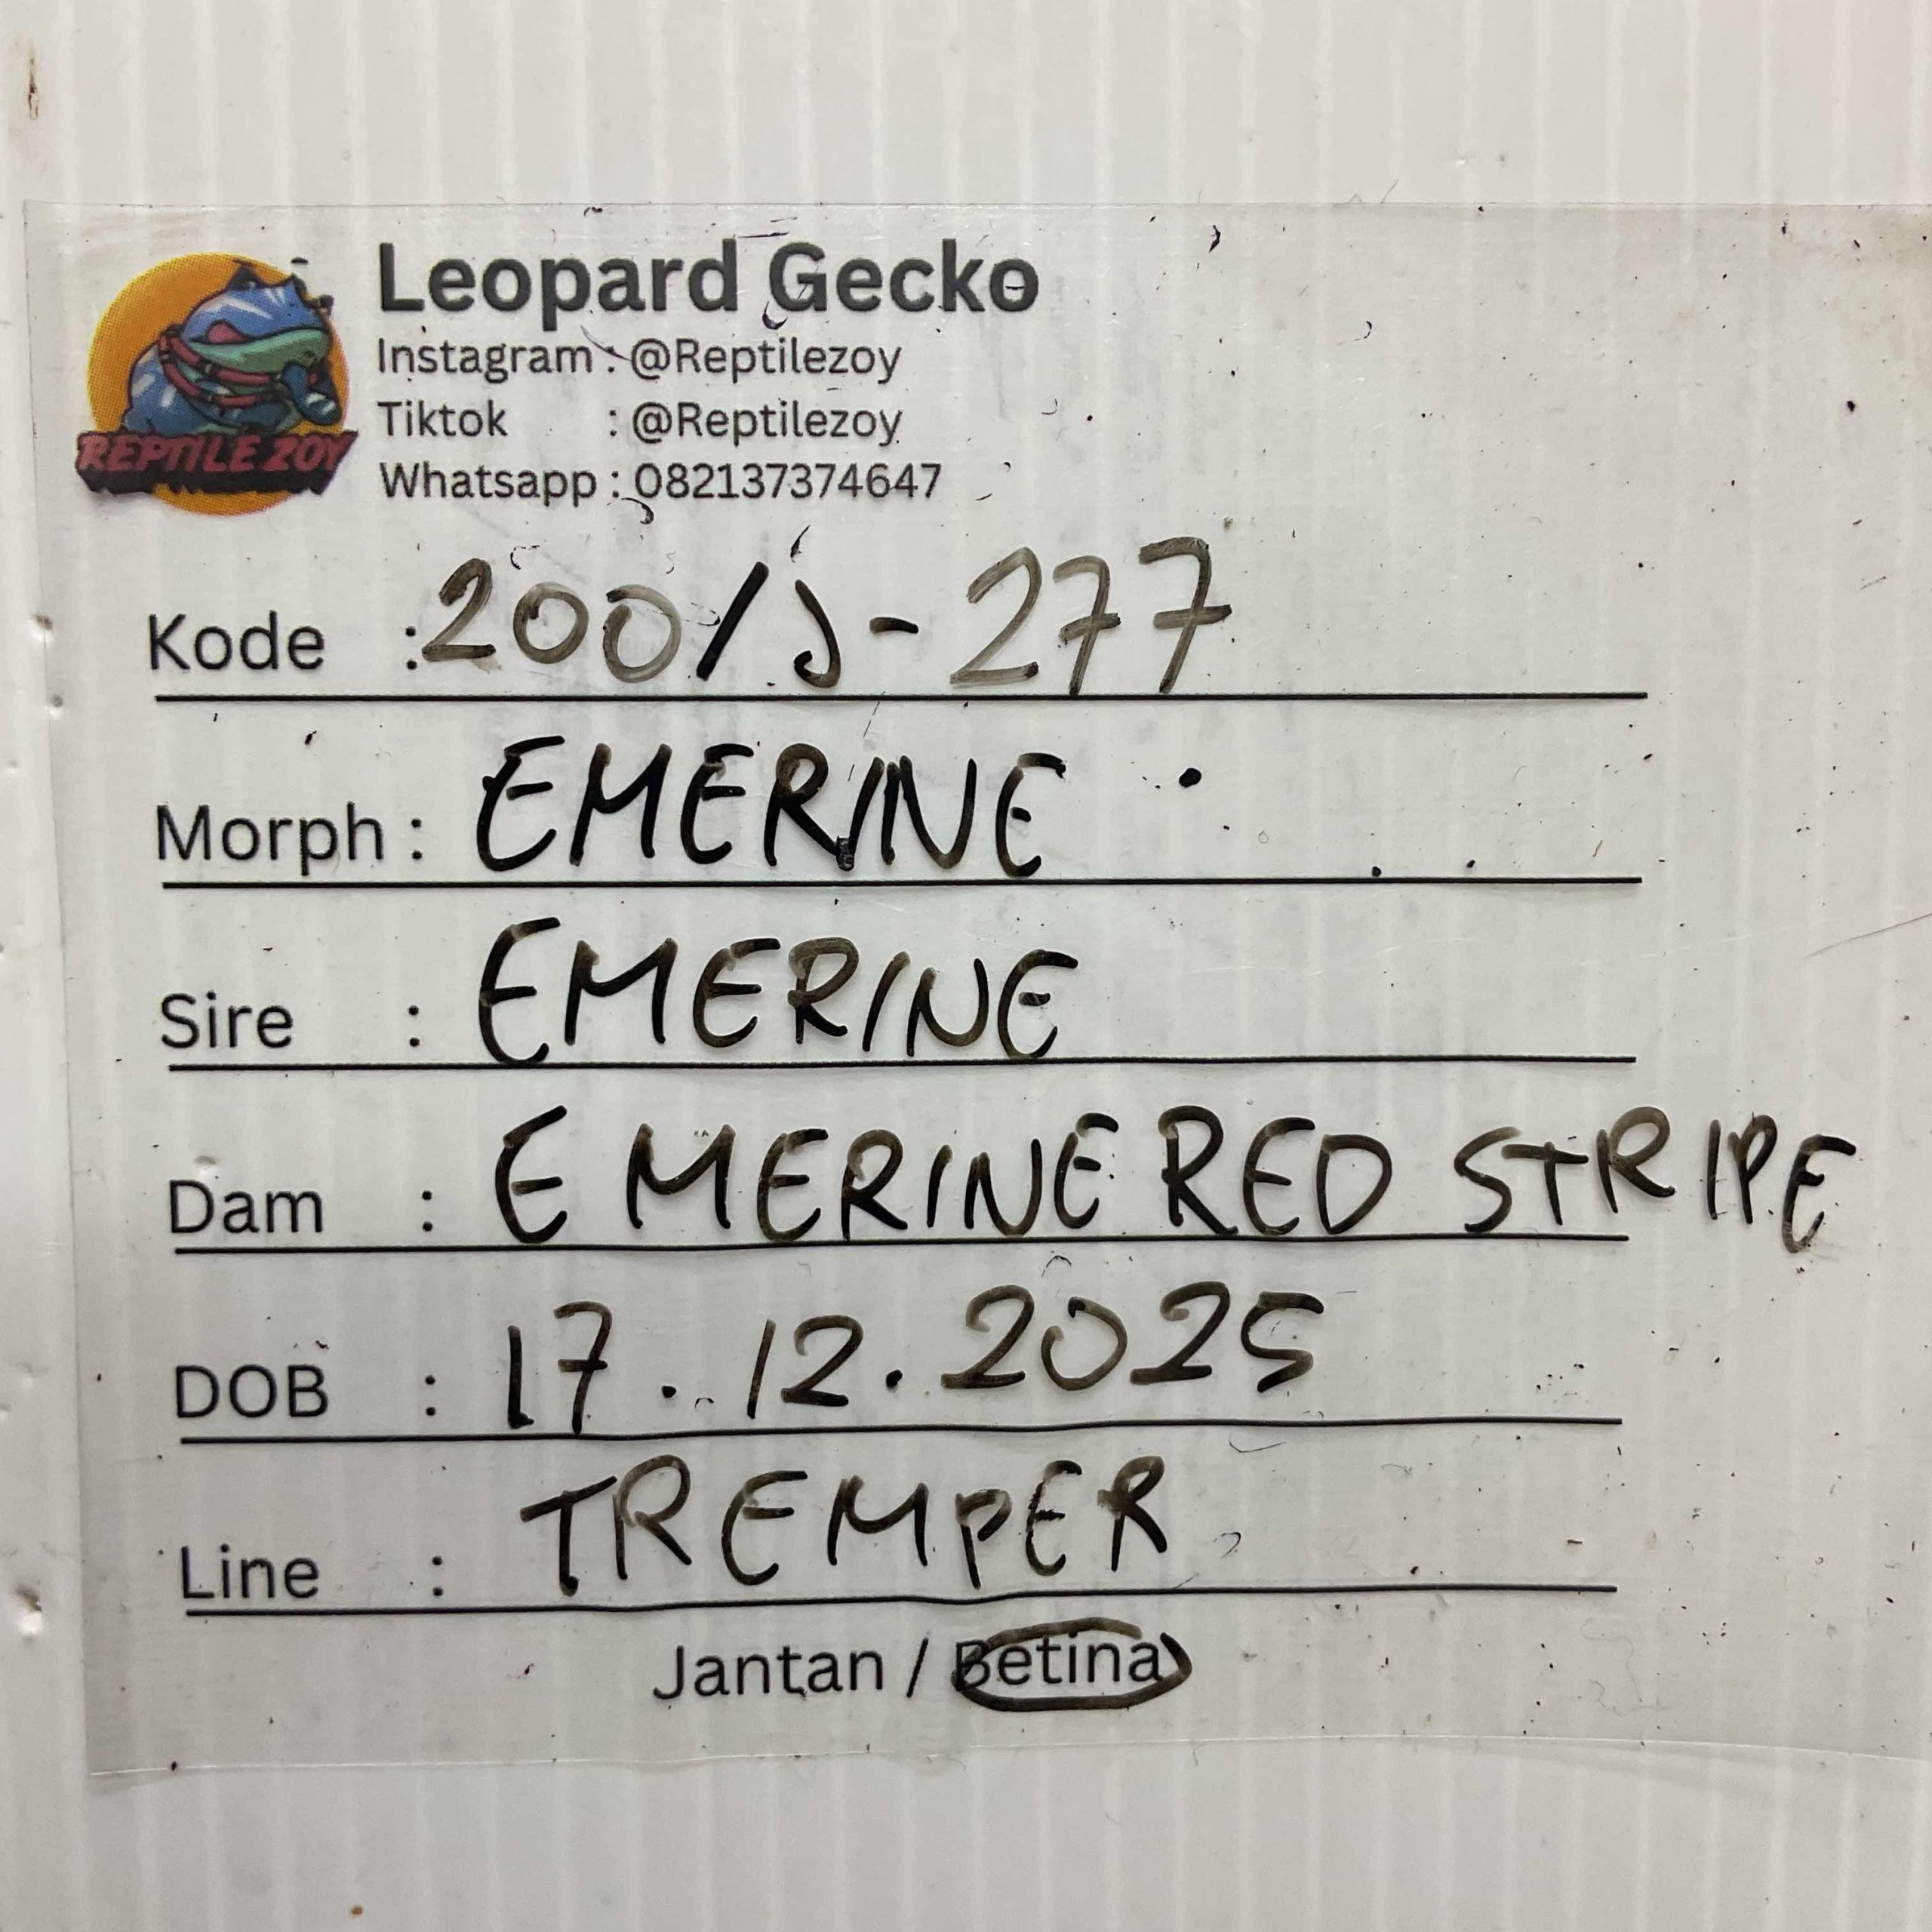 Leopard Gecko
Instagram : @Reptilezoy
Tiktok : @Reptilezoy
Whatsapp : 082137374647
REPTILE ZOY
Kode : 200/J-277
Morph : EMERINE
Sire : EMERINE
Dam : EMERINE RED STRIPE
DOB : 17.12.2025
Line : TREMPER
Jantan / Betina